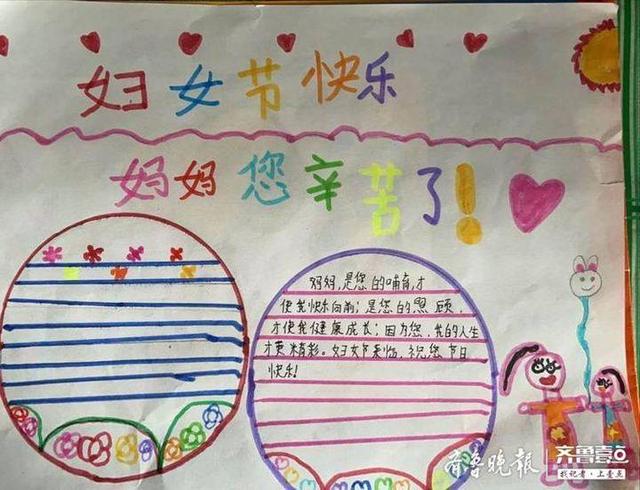 妇女节快乐
妈妈您辛苦了！
妈妈,是您的哺育,才
使我快乐向前;是您的照顾,
才使我健康成长;因为您,我的人生
才更精彩。妇女节来临,祝您节日
快乐!
齐鲁晚报
齐鲁壹点
找记者·上壹点